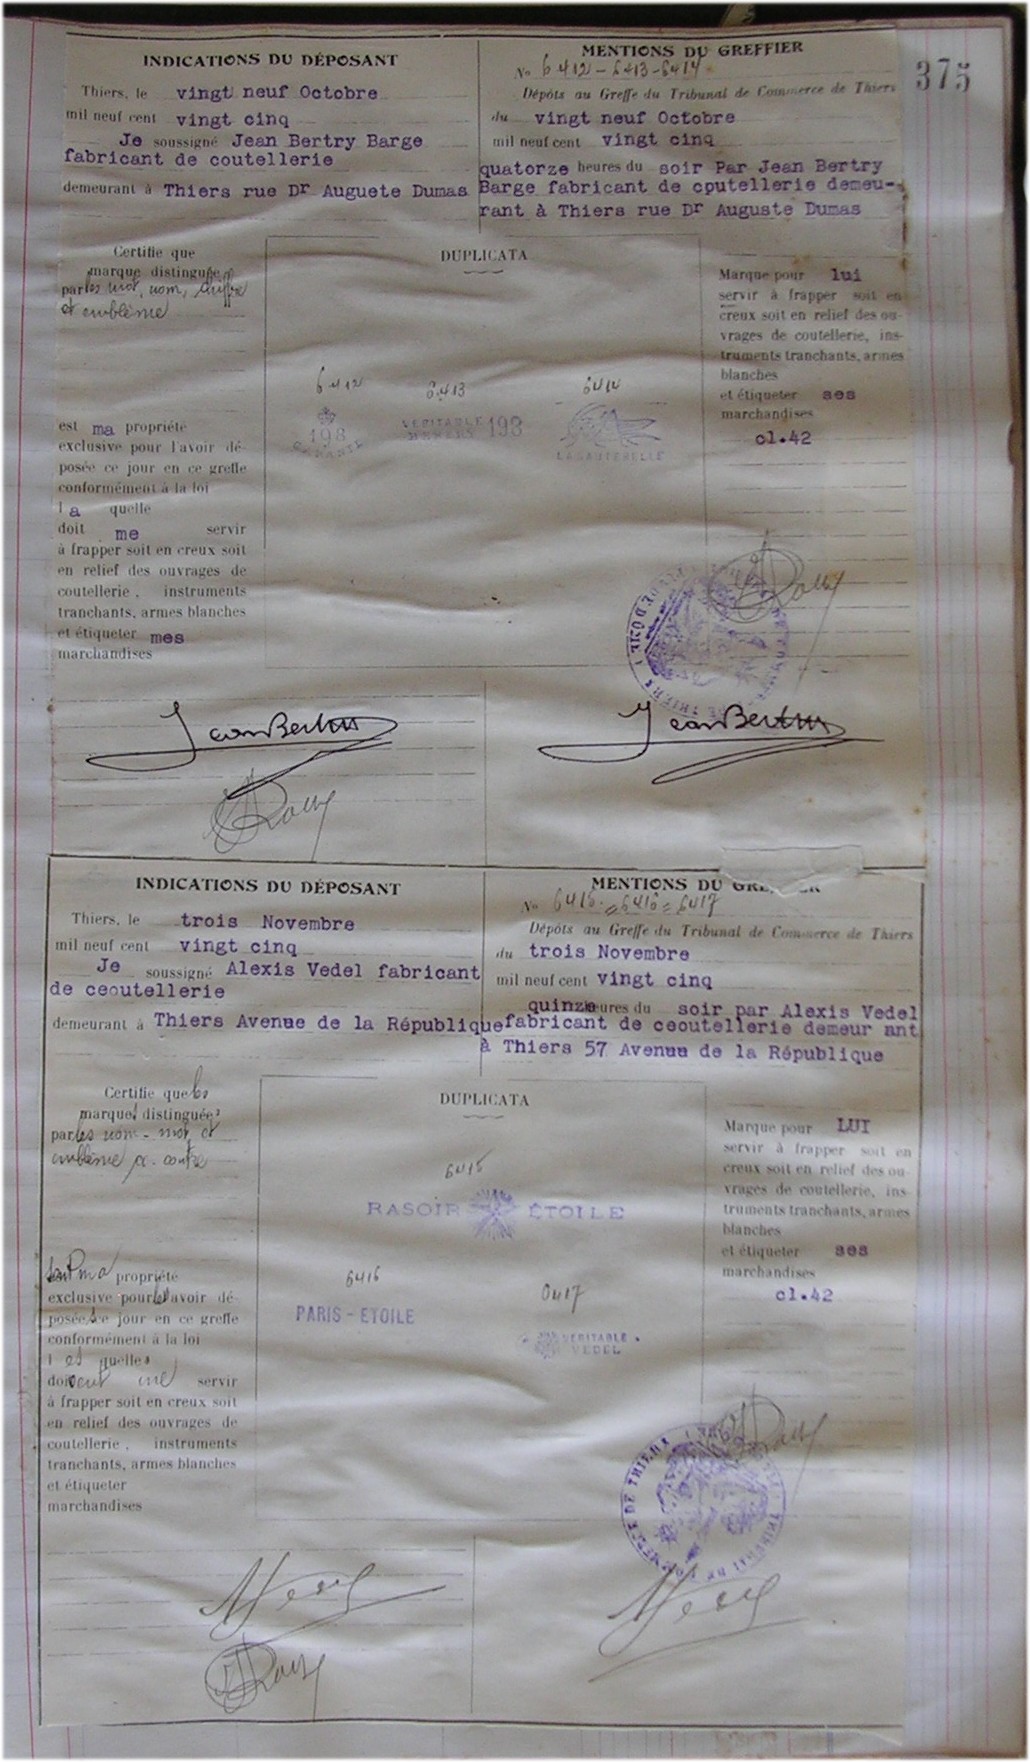 375
INDICATIONS DU DÉPOSANT
Thiers, le vingt neuf Octobre
mil neuf cent vingt cinq
Je soussigné Jean Bertry Barge
fabricant de coutellerie
demeurant à Thiers rue Dr Auguete Dumas
MENTIONS DU GREFFIER
No 6412-6413-6414
Dépôts au Greffe du Tribunal de Commerce de Thiers
du vingt neuf Octobre
mil neuf cent vingt cinq
quatorze heures du soir Par Jean Bertry
Barge fabricant de coutellerie demeu-
rant à Thiers rue Dr Auguste Dumas
Certifie que
marque distinguée
par les mot, nom, chiffre
et emblème
est ma propriété
exclusive pour l'avoir dé-
posée ce jour en ce greffe
conformément à la loi
l a quelle
doit me servir
à frapper soit en creux soit
en relief des ouvrages de
coutellerie, instruments
tranchants, armes blanches
et étiqueter mes
marchandises
DUPLICATA
6412 6413 6414
198
VERITABLE 198
LA SAUTERELLE
Marque pour lui
servir à frapper soit en
creux soit en relief des ou-
vrages de coutellerie, ins-
truments tranchants, armes
blanches
et étiqueter ses
marchandises
cl.42
Jean Bertry
Jean Bertry
INDICATIONS DU DÉPOSANT
Thiers, le trois Novembre
mil neuf cent vingt cinq
Je soussigné Alexis Vedel fabricant
de ceoutellerie
demeurant à Thiers Avenue de la République
MENTIONS DU GREFFIER
No 6415=6416=6417
Dépôts au Greffe du Tribunal de Commerce de Thiers
du trois Novembre
mil neuf cent vingt cinq
quinze heures du soir par Alexis Vedel
fabricant de ceoutellerie demeur ant
à Thiers 57 Avenue de la République
Certifie que les
marques distinguées
par les nom - mot et
emblème ci-contre
sont ma propriété
exclusive pour les avoir dé-
posées ce jour en ce greffe
conformément à la loi
l es quelles
doivent me servir
à frapper soit en creux soit
en relief des ouvrages de
coutellerie, instruments
tranchants, armes blanches
et étiqueter
marchandises
DUPLICATA
6415
RASOIR ÉTOILE
6416 6417
PARIS-ETOILE
VERITABLE
VEDEL
Marque pour LUI
servir à frapper soit en
creux soit en relief des ou-
vrages de coutellerie, ins-
truments tranchants, armes
blanches
et étiqueter ses
marchandises
cl.42